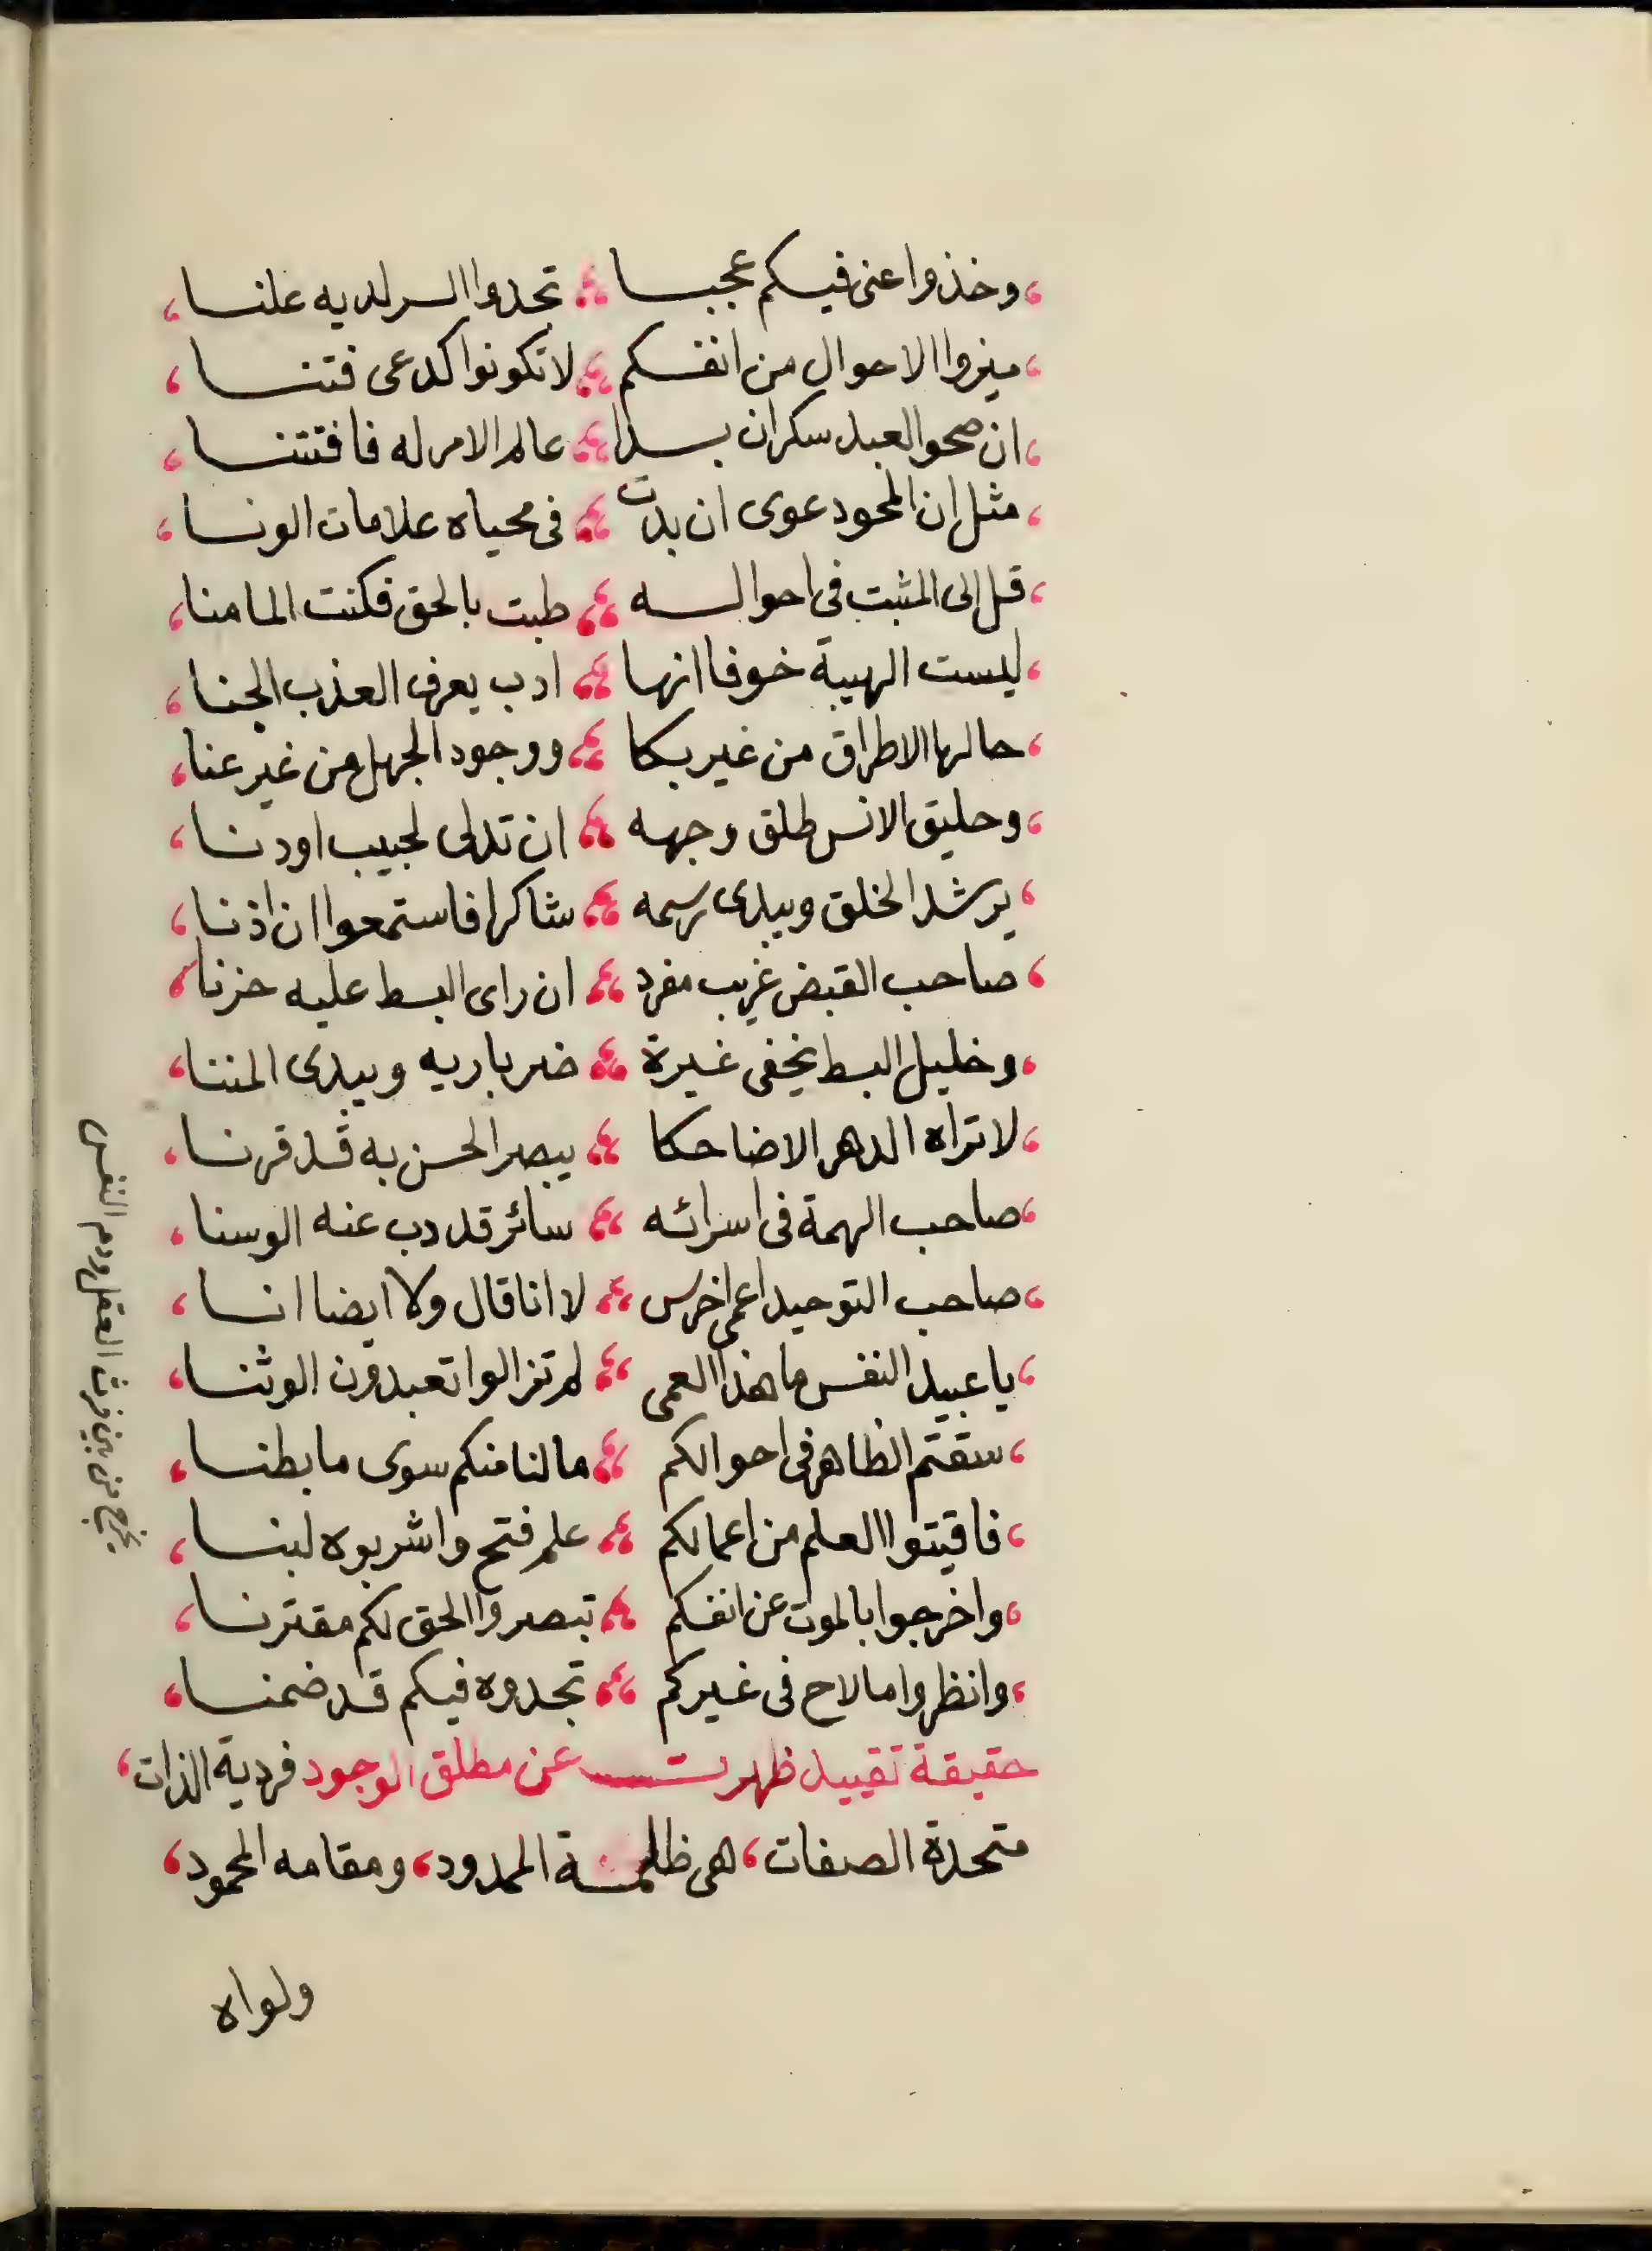 ، وخذوا عنى فيكم عجبا ؛ تجدوا السر لديه علنا ،
، ميزوا الاحوال من انفسكم ؛ لا تكونوا كدعى فتنا ،
، ان صحو العبد سكران بدا ؛ عالم الامر له فافتتنا ،
، مثل ان المحو دعوى ان بدت ؛ فى محياه علامات الونا ،
، قل الى المثبت فى احواله ؛ طبت بالحق فكنت المامنا ،
، ليست الهيبة خوفا انها ؛ ادب يعرف العذب الجنا ،
، حالها الاطراق من غير بكا ؛ ووجود الجهل من غير عنا ،
، وحليق الانس طلق وجهه ؛ ان تدلى لحبيب اودنا ،
، يرشد الخلق ويبدى رسمه ؛ شاكرا فاستمعوا ان اذنا ،
، صاحب القبض غريب مفرد ؛ ان راى البسط عليه حزنا ،
، وخليل البسط يخفى غيرة ؛ ضر باريه ويبدى المننا ،
، لا تراه الدهر الا ضاحكا ؛ يبصر الحسن به قد قرنا ،
، صاحب الهمة فى اسرائه ؛ سائر قد دب عنه الوسنا ،
، صاحب التوحيد اعمى اخرس ؛ لا انا قال ولا ايضا انا ،
، يا عبيد النفس ما هذا العمى ؛ لم تزالوا تعبدون الوثنا ،
، سقتم الظاهر فى احوالكم ؛ ما لنا منكم سوى ما بطنا ،
، فاقيتوا العلم من اعمالكم ؛ علم فتح واشربوه لبنا ،
، واخرجوا بالموت عن انفسكم ؛ تبصروا الحق لكم مقترنا ،
، وانظروا ما لاح فى غيركم ؛ تجدوه فيكم قد ضمنا ،
حقيقة تقييد ظهرت عن مطلق الوجود فردية الذات ،
متحدة الصفات ، هى ظله الممدود ، ومقامه المحمود ،
ولواه
من بين فرث العقل ودم النفس